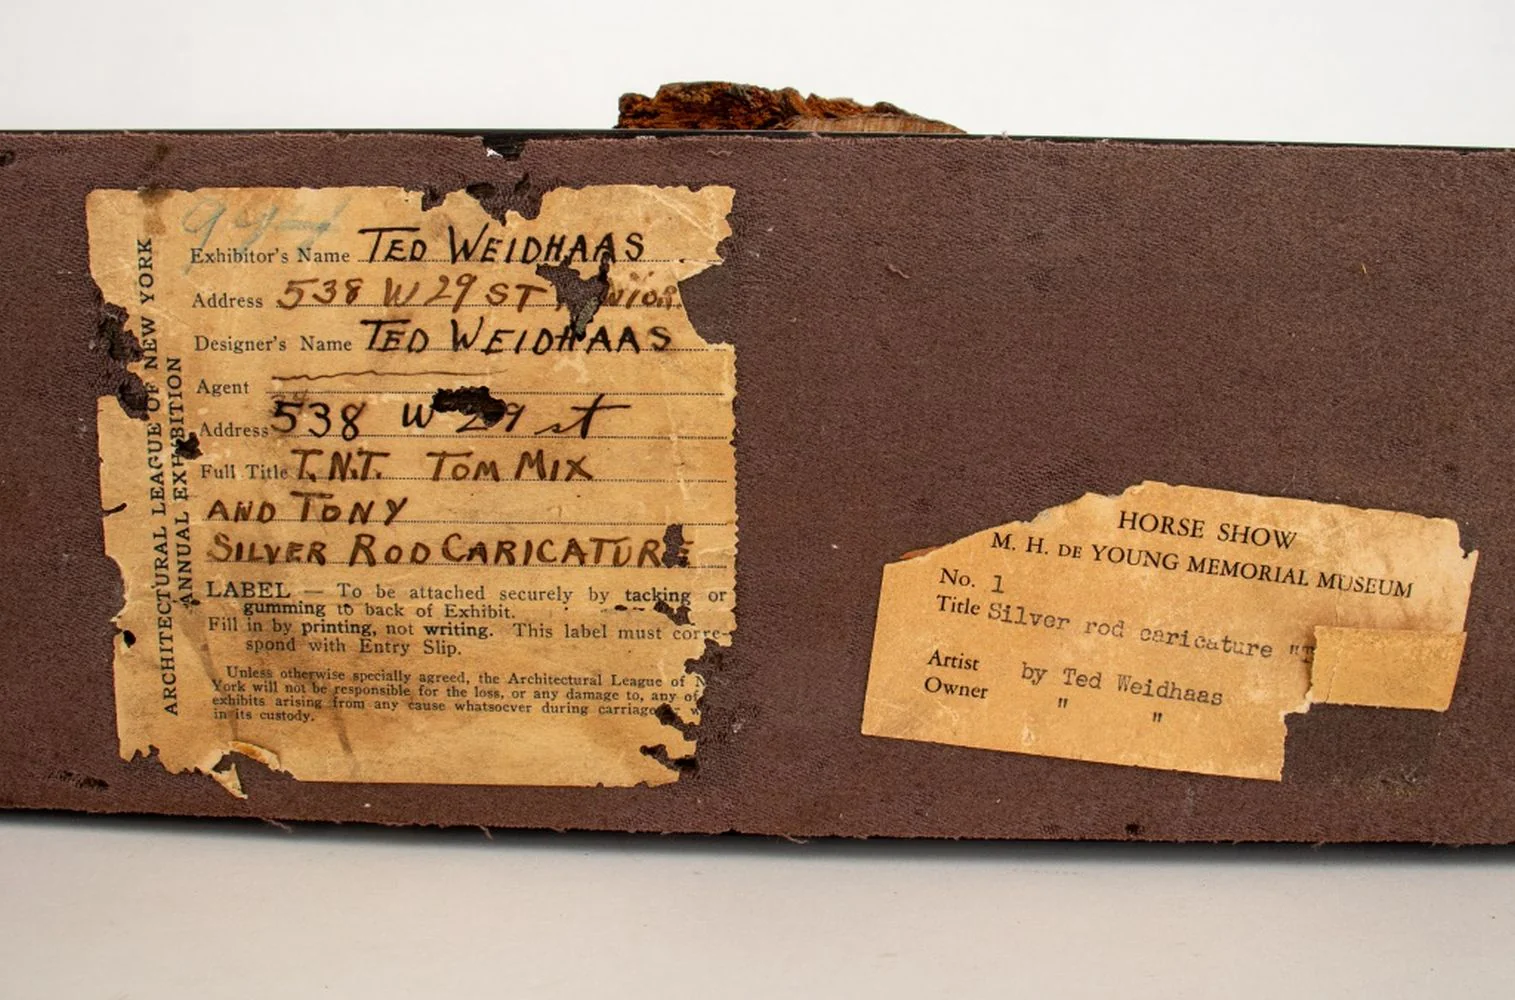 ARCHITECTURAL LEAGUE OF NEW YORK
ANNUAL EXHIBITION
Exhibitor's Name TED WEIDHAAS
Address 538 W 29 ST
Designer's Name TED WEIDHAAS
Agent
Address 538 W 29 st
Full Title T.N.T. TOM MIX
AND TONY
SILVER ROD CARICATURE
LABEL — To be attached securely by tacking or
gumming to back of Exhibit.
Fill in by printing, not writing. This label must corre-
spond with Entry Slip.
Unless otherwise specially agreed, the Architectural League of
York will not be responsible for the loss, or any damage to, any of
exhibits arising from any cause whatsoever during carriage
in its custody.
HORSE SHOW
M. H. DE YOUNG MEMORIAL MUSEUM
No. 1
Title Silver rod caricature "T
Artist by Ted Weidhaas
Owner " "